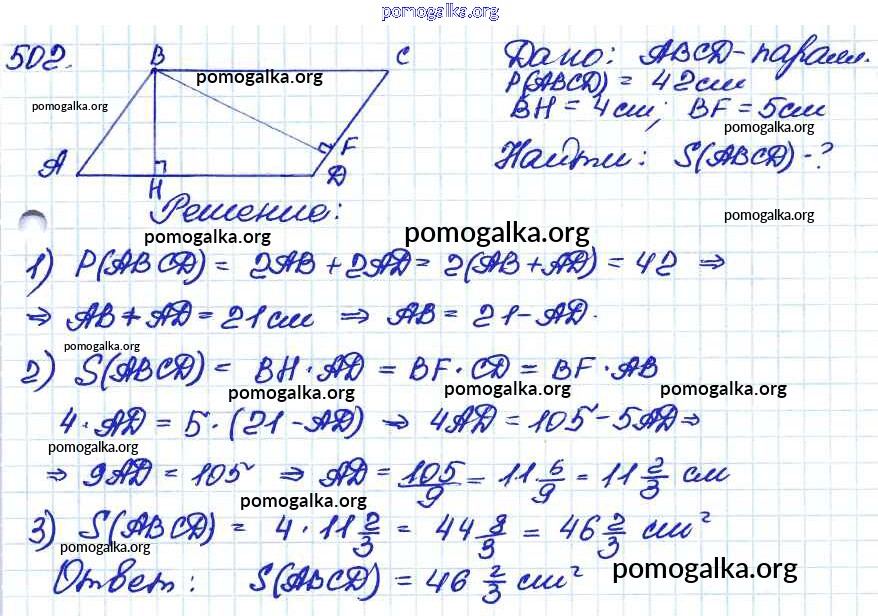 pomogalka.org
502.
B
C
A
H
F
D
Дано: ABCD - паралл.
P(ABCD) = 42 см
BH = 4 см; BF = 5 см
Найти: S(ABCD) - ?
pomogalka.org
pomogalka.org
pomogalka.org
pomogalka.org
Решение:
pomogalka.org
pomogalka.org
1) P(ABCD) = 2AB + 2AD = 2(AB + AD) = 42 ⇒
⇒ AB + AD = 21 см ⇒ AB = 21 - AD.
pomogalka.org
2) S(ABCD) = BH · AD = BF · CD = BF · AB
pomogalka.org pomogalka.org pomogalka.org
4 · AD = 5 · (21 - AD) ⇒ 4AD = 105 - 5AD ⇒
pomogalka.org
⇒ 9AD = 105 ⇒ AD = 105/9 = 11 6/9 = 11 2/3 см
pomogalka.org
3) S(ABCD) = 4 · 11 2/3 = 44 8/3 = 46 2/3 см²
pomogalka.org
Ответ: S(ABCD) = 46 2/3 см²
pomogalka.org